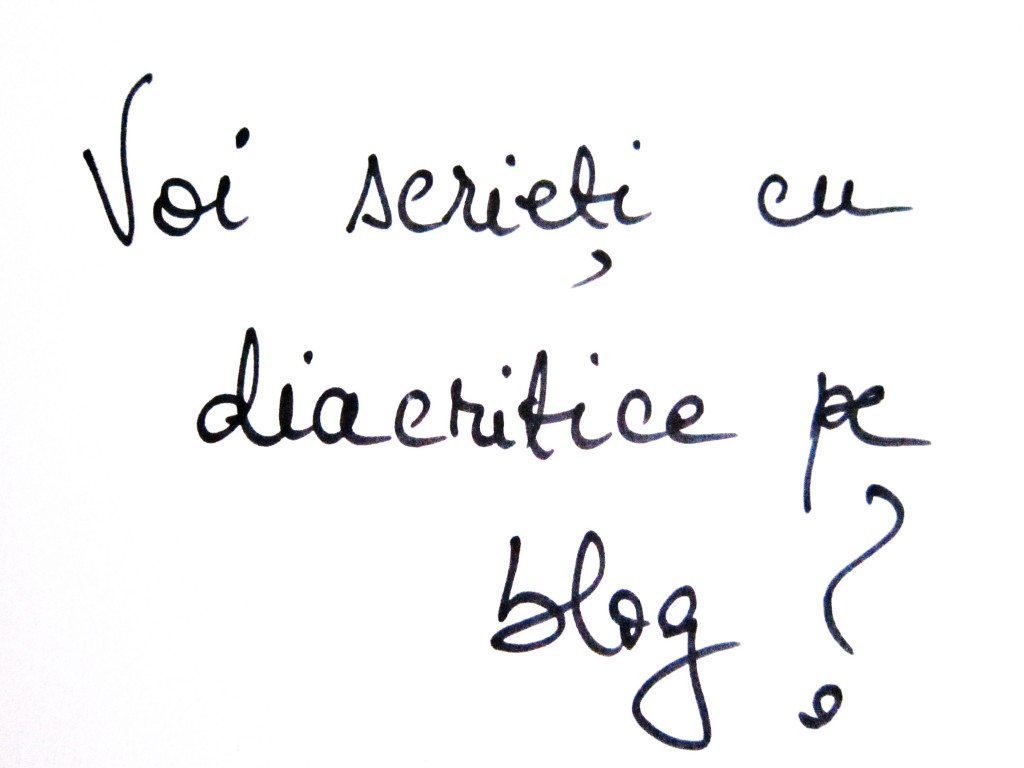 Voi scrieți cu
diacritice pe
blog?